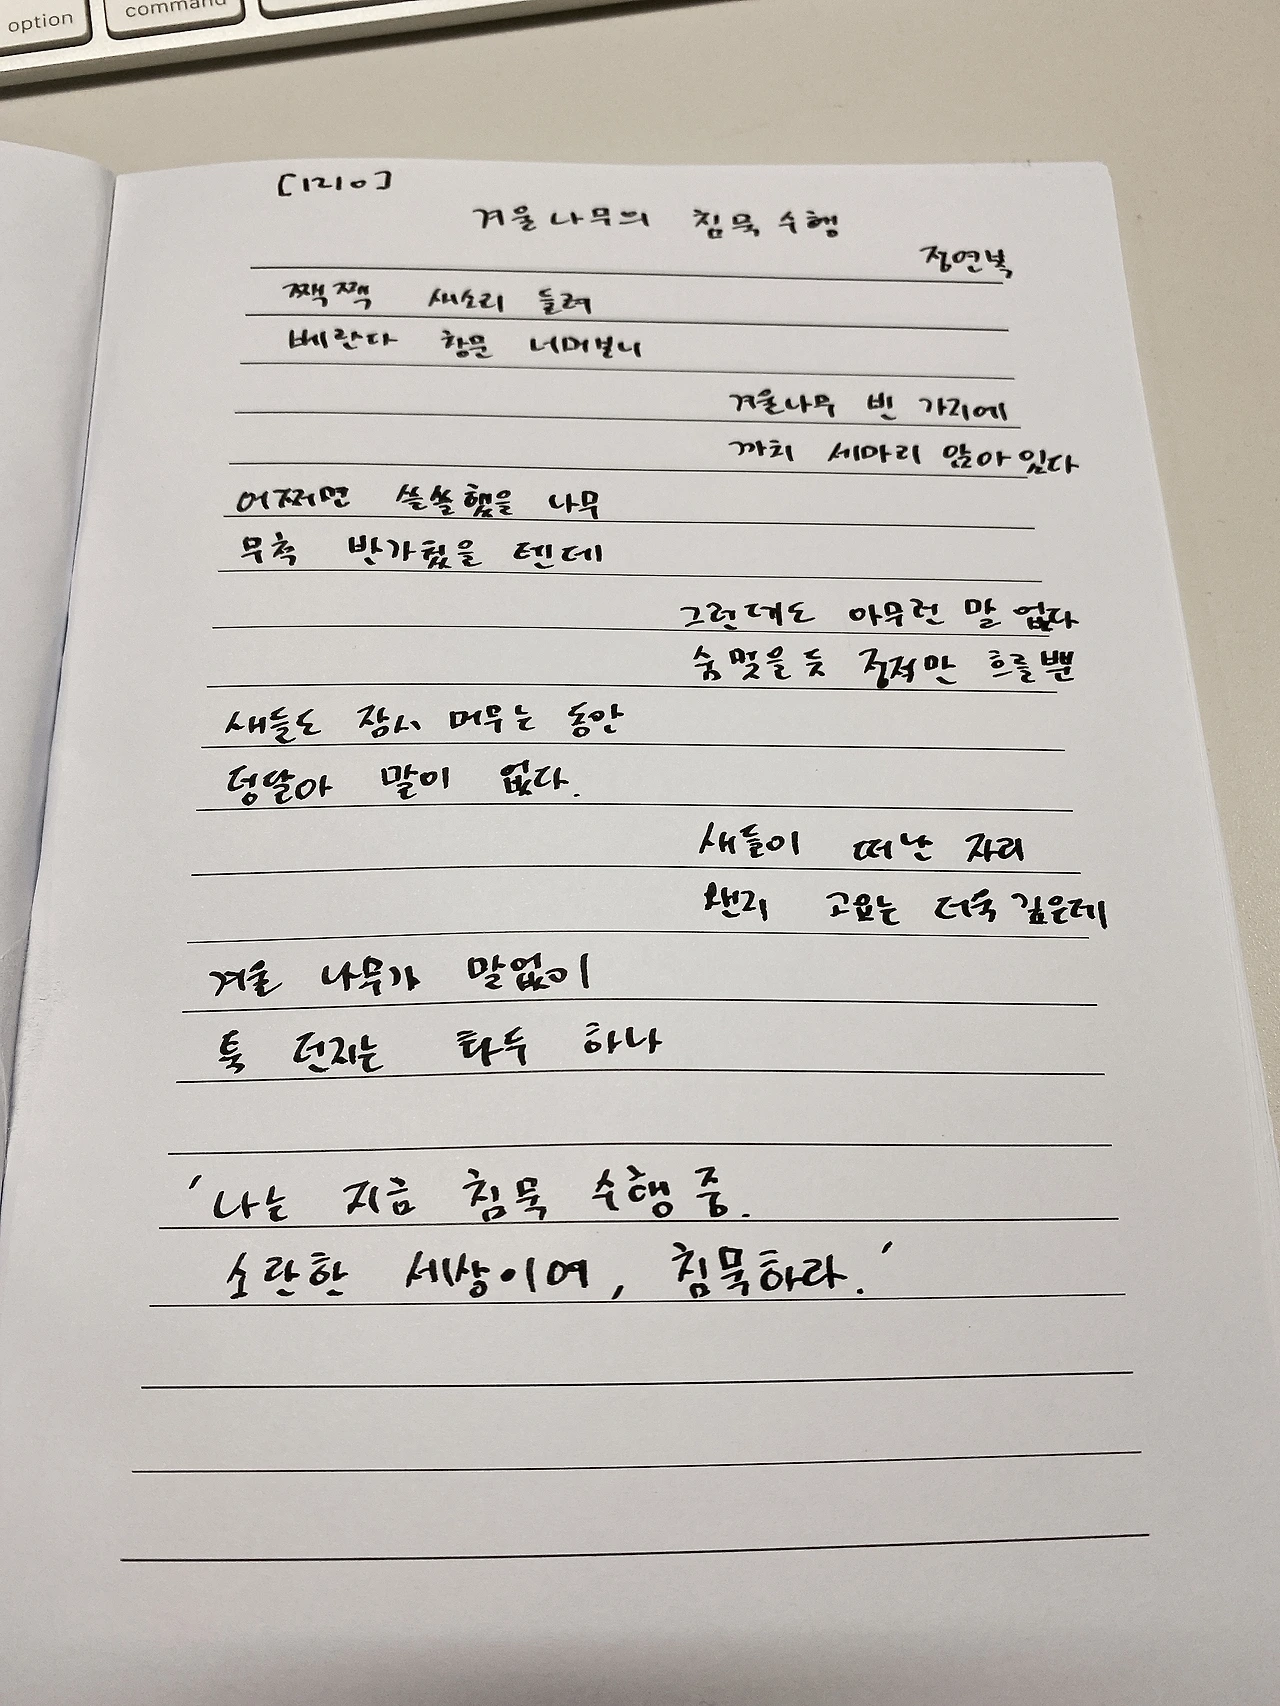 option
command
[1210]
겨울나무의 침묵 수행
정연복
짹짹 새소리 들려
베란다 창문 너머보니
겨울나무 빈 가지에
까치 세마리 앉아있다
어쩌면 쓸쓸했을 나무
무척 반가웠을 텐데
그런데도 아무런 말 없다
숨 멎을 듯 정적만 흐를뿐
새들도 잠시 머무는 동안
덩달아 말이 없다.
새들이 떠난 자리
왠지 고요는 더욱 깊은데
겨울 나무가 말없이
툭 던지는 화두 하나
'나는 지금 침묵 수행 중.
소란한 세상이여, 침묵하라.'